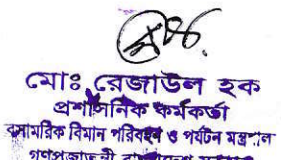 মোঃ রেজাউল হক
প্রশাসনিক কর্মকর্তা
বেসামরিক বিমান পরিবহন ও পর্যটন মন্ত্রণালয়
গণপ্রজাতন্ত্রী বাংলাদেশ সরকার